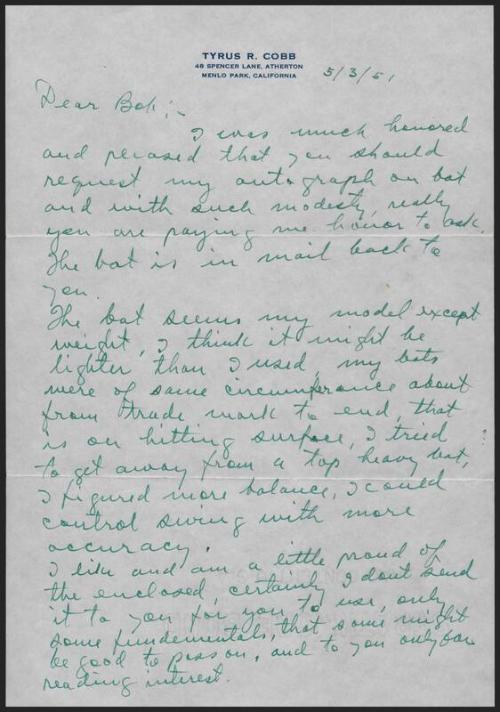 TYRUS R. COBB
48 SPENCER LANE, ATHERTON
MENLO PARK, CALIFORNIA
5/3/51
Dear Bob:-
I was much honored
and pleased that you should
request my autograph on bat
and with such modesty, really
you are paying me honor to ask.
The bat is in mail back to
you.
The bat seems my model except
weight, I think it might be
lighter than I used, my bats
were of same circumference about
from trade mark to end, that
is on hitting surface, I tried
to get away from a top heavy bat,
I figured more balance, I could
control swing with more
accuracy.
I like and am a little proud of
the enclosed, certainly I dont send
it to you for you to use, only
some fundamentals, that some might
be good to pass on, and to you only for
reading interest.